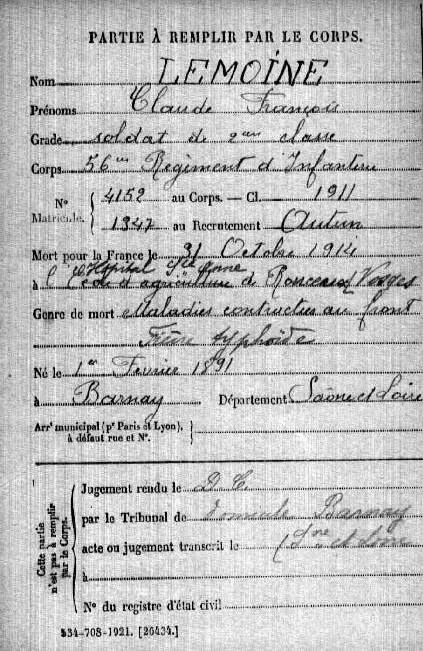 PARTIE À REMPLIR PAR LE CORPS.
Nom LEMOINE
Prénoms Claude François
Grade soldat de 2me classe
Corps 56me Régiment d'Infanterie
Nº Matricule. 4152 au Corps. — Cl. 1911
1347 au Recrutement Autun
Mort pour la France le 31 Octobre 1914
l'Hôpital Ste Anne
à l'École d'agriculture de Vosges
Genre de mort Maladies contractées au front
Fièvre typhoïde
Né le 1er Février 1891
à Barnay Département Saône et Loire
Arrt municipal (pr Paris et Lyon),
à défaut rue et Nº.
Cette partie n'est pas à remplir par le Corps.
Jugement rendu le D. C.
par le Tribunal de Domicile Barnay
acte ou jugement transcrit le (Sne et Loire
à
Nº du registre d'état civil
534-708-1921. [26434.]